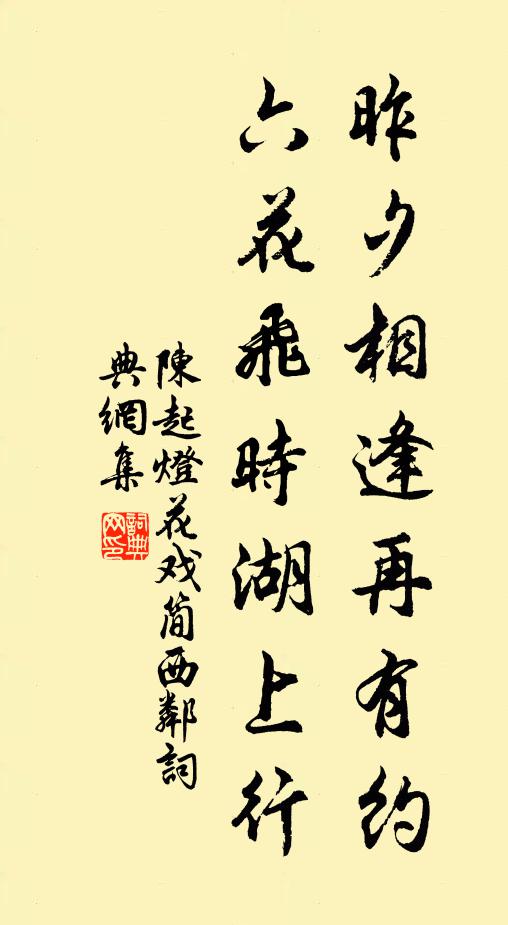 昨夕相逢再有约
六花飛時湖上行
陳起燈花戏简西鄰詞
典網集
詞典网印